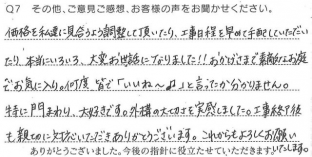 Q7 その他、ご意見ご感想、お客様の声をお聞かせください。
価格を私達に見合うよう調整して頂いたり、工事日程を早めて手配していただい
たり、本当にいろいろ、大変お世話になりました!!おかげさまで素敵なお庭
でお気に入り。何度皆で「いいね〜♪」と言ったか分かりません。
特に門まわり、大好きです。外構の大切さを実感しました。工事終了後
も親切に対応いただきありがとうございます。これからもよろしくお願い
いたします。
ありがとうございました。今後の指針に役立たせていただきます。